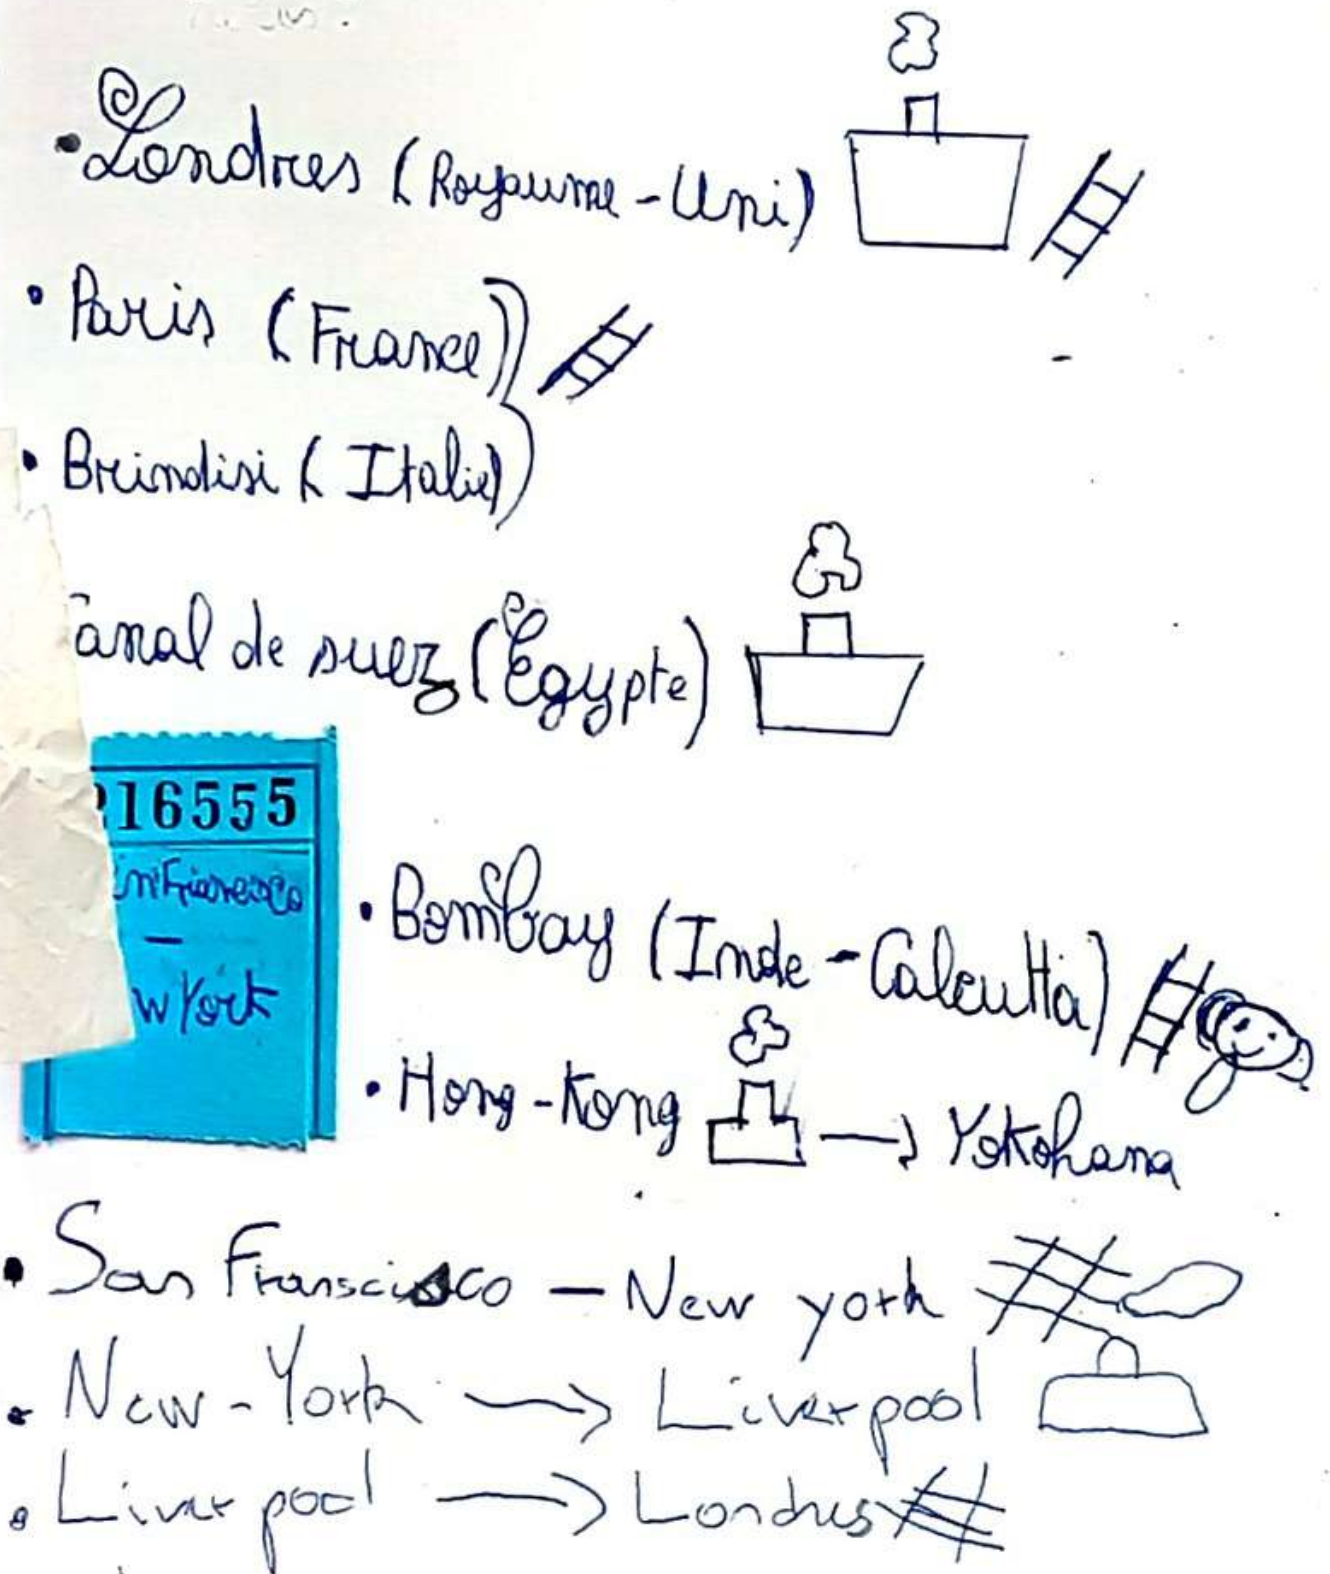 • Londres (Royaume-Uni)
• Paris (France)
• Brindisi (Italie)
anal de suez (Égypte)
16555
nFrancisco
—
w York
• Bombay (Inde - Calcutta)
• Hong-Kong → Yokohana
• San Franscisco — New york
• New-York → Liverpool
• Liverpool → Londres